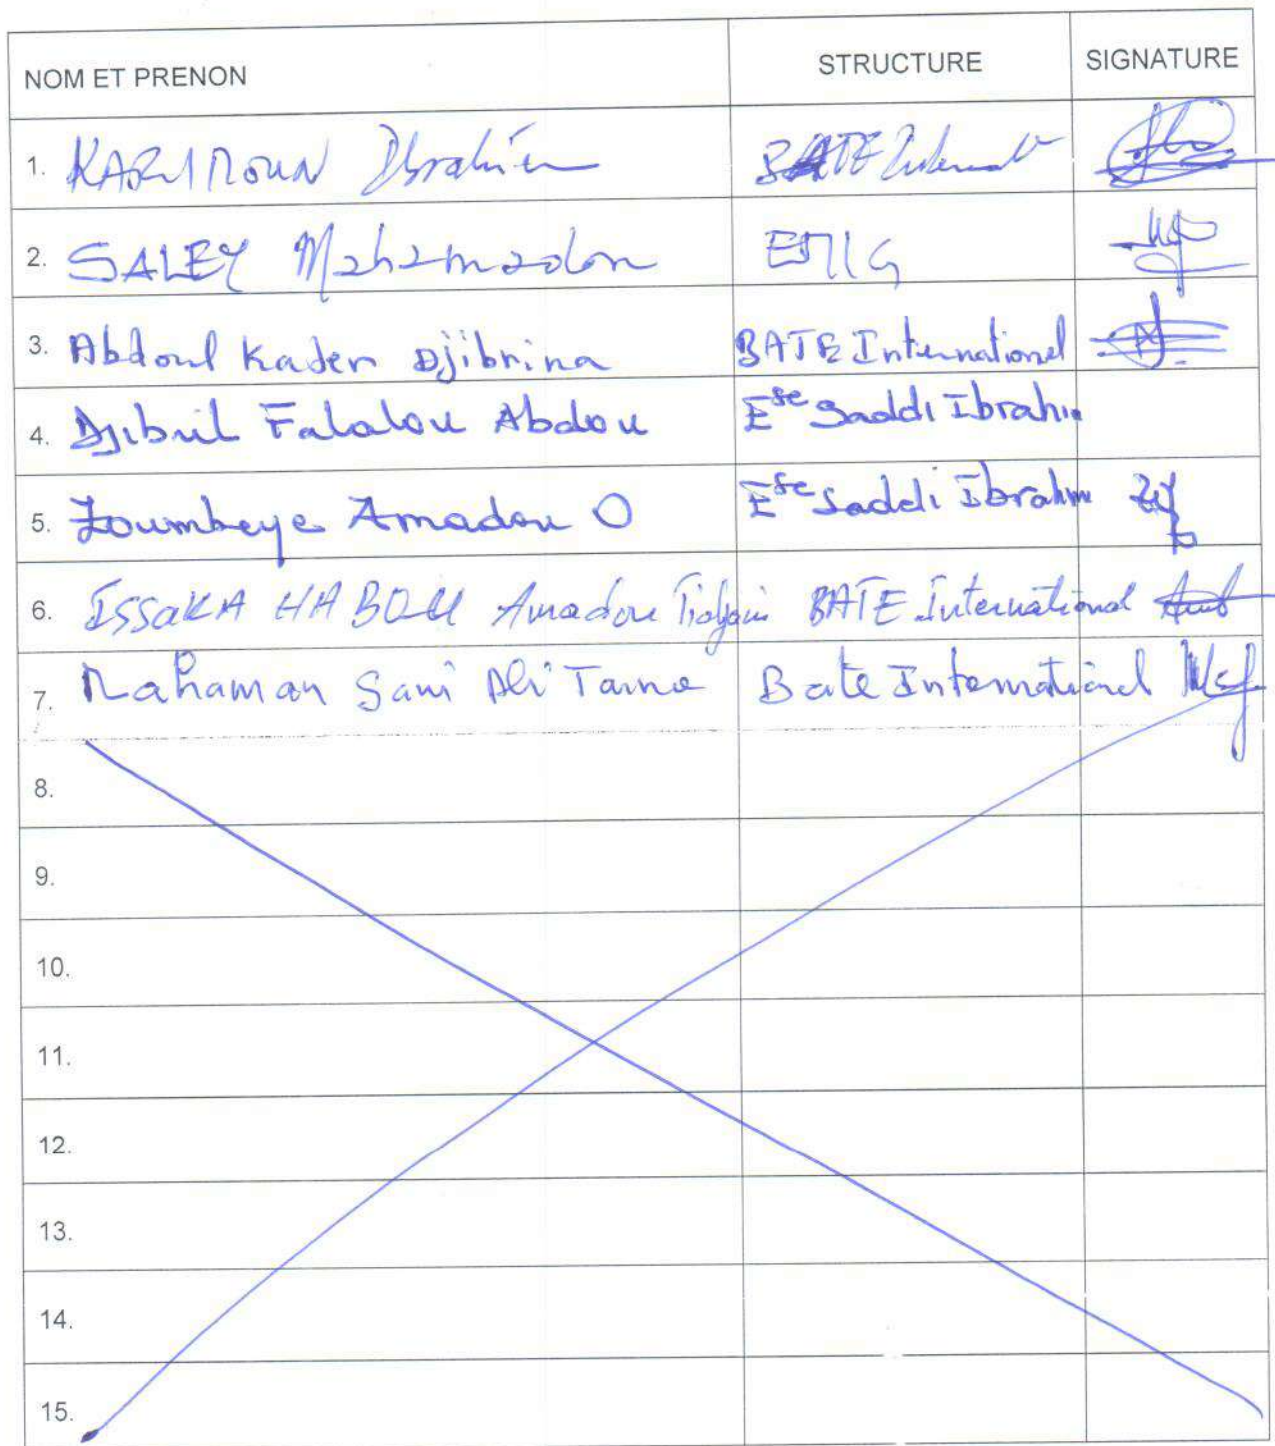 NOM ET PRENON STRUCTURE SIGNATURE
1. KARIMOUN Ibrahim BATE Internat
2. SALEY Mahamadou EMIG
3. Abdoul Kader Djibrina BATE International
4. Djibril Falalou Abdou Ese Saddi Ibrahim
5. Zoumbeye Amadou O Ese Saddi Ibrahim
6. ISSAKA HABOU Amadou Tidjani BATE International
7. Mahaman Sani Ali Bate International
8.
9.
10.
11.
12.
13.
14.
15.